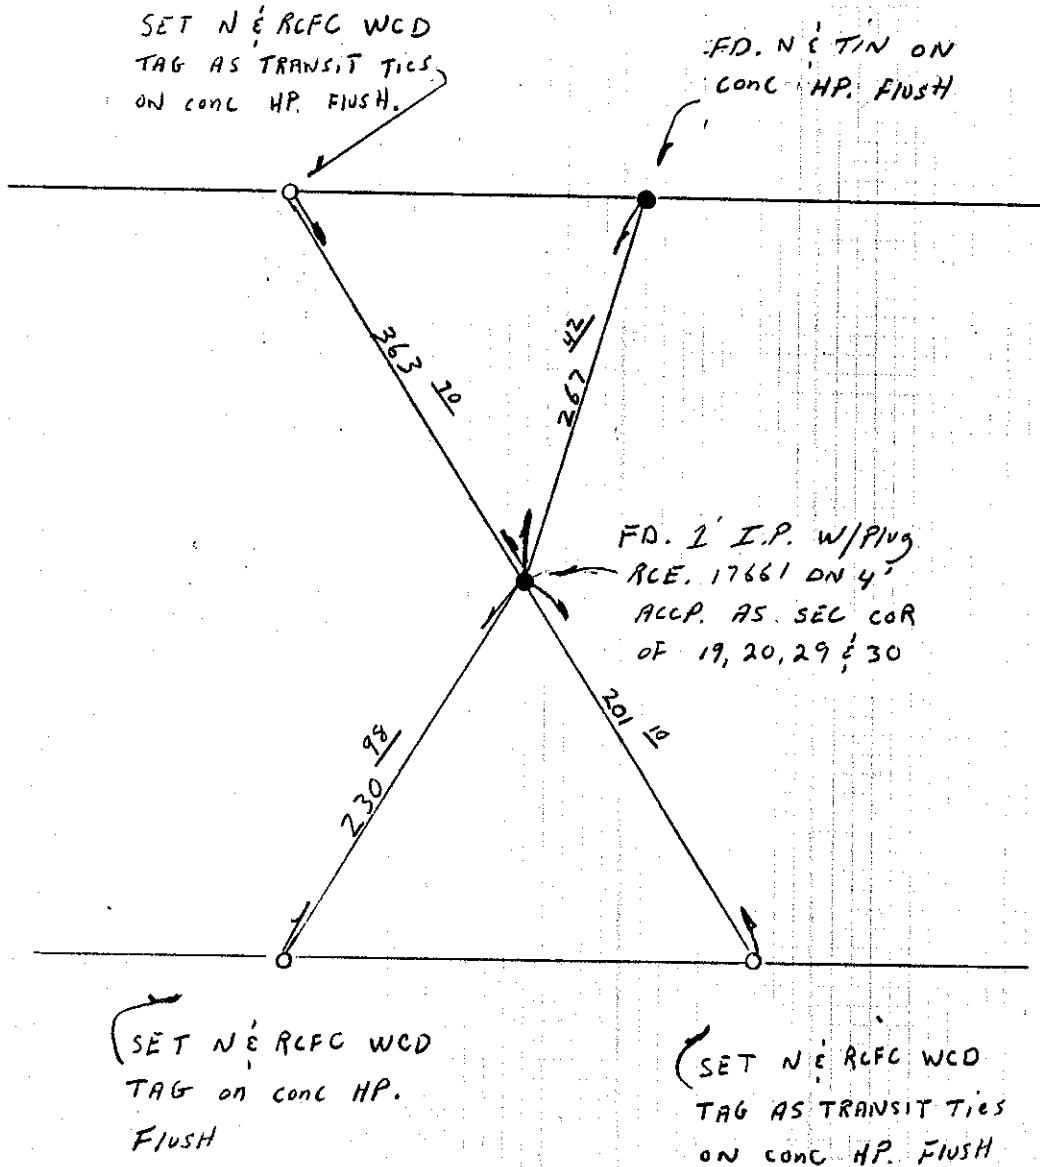 SET N & RCFC WCD
TAG AS TRANSIT TIES
ON CONC HP. FLUSH.
FD. N & T/N ON
CONC HP. FLUSH
363 30
267 42
FD. 1" I.P. W/Plug
RCE. 17661 DN 4'
ACCP. AS SEC COR
OF 19, 20, 29 & 30
230 98
201 10
SET N & RCFC WCD
TAG on conc HP.
FLUSH
SET N & RCFC WCD
TAG AS TRANSIT Ties
ON CONC HP. FLUSH